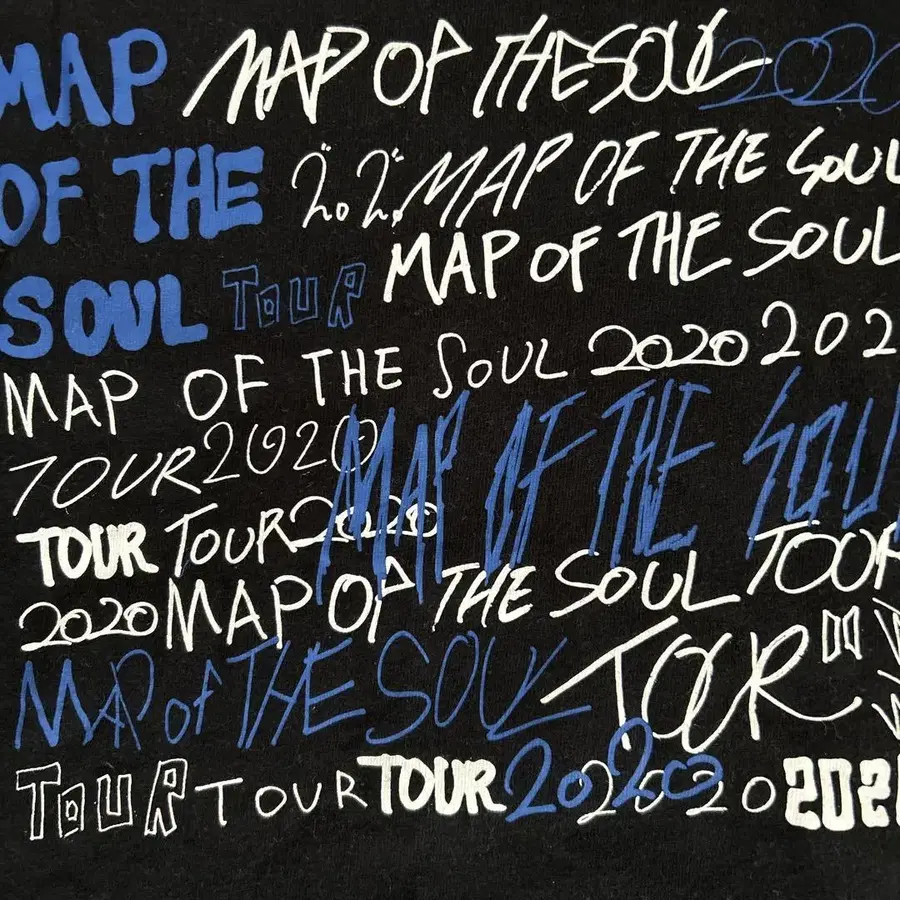 MAP MAP OF THE SOUL 2020
OF THE 2.2. MAP OF THE SOUL
SOUL TOUR MAP OF THE SOUL
MAP OF THE SOUL 2020 202
TOUR 2020 MAP OF THE SOU
TOUR TOUR 2020
2020 MAP OF THE SOUL TOUR
MAP of THE SOUL TOUR
TOUR TOUR TOUR 2020 2020 202